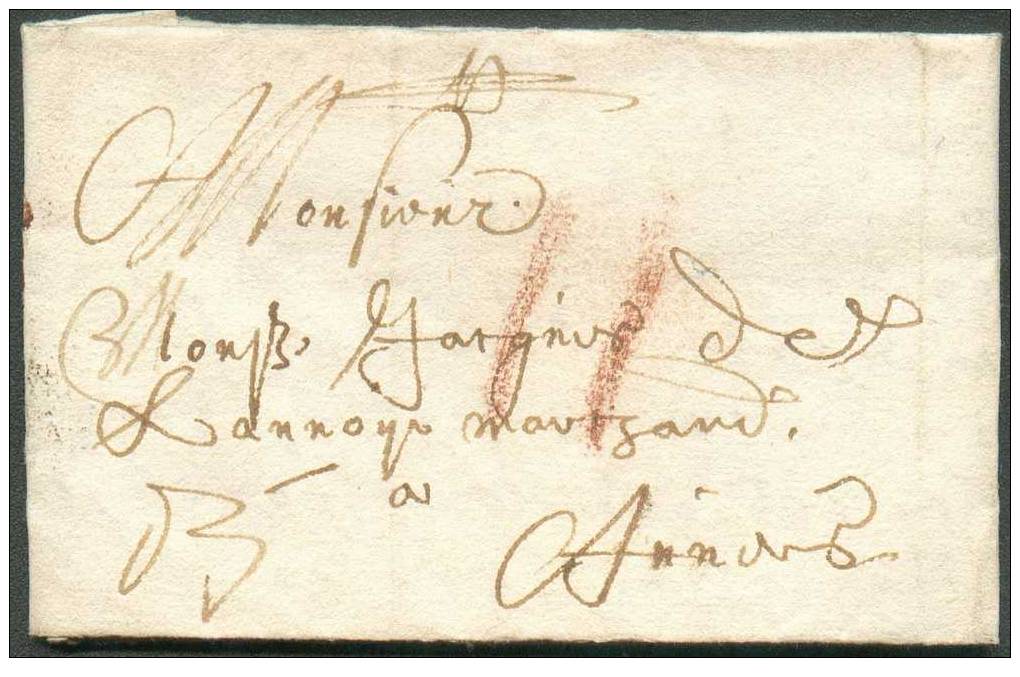 Monsieur
Monsr. Jacques de
Lannoy marchand.
a
Anvers